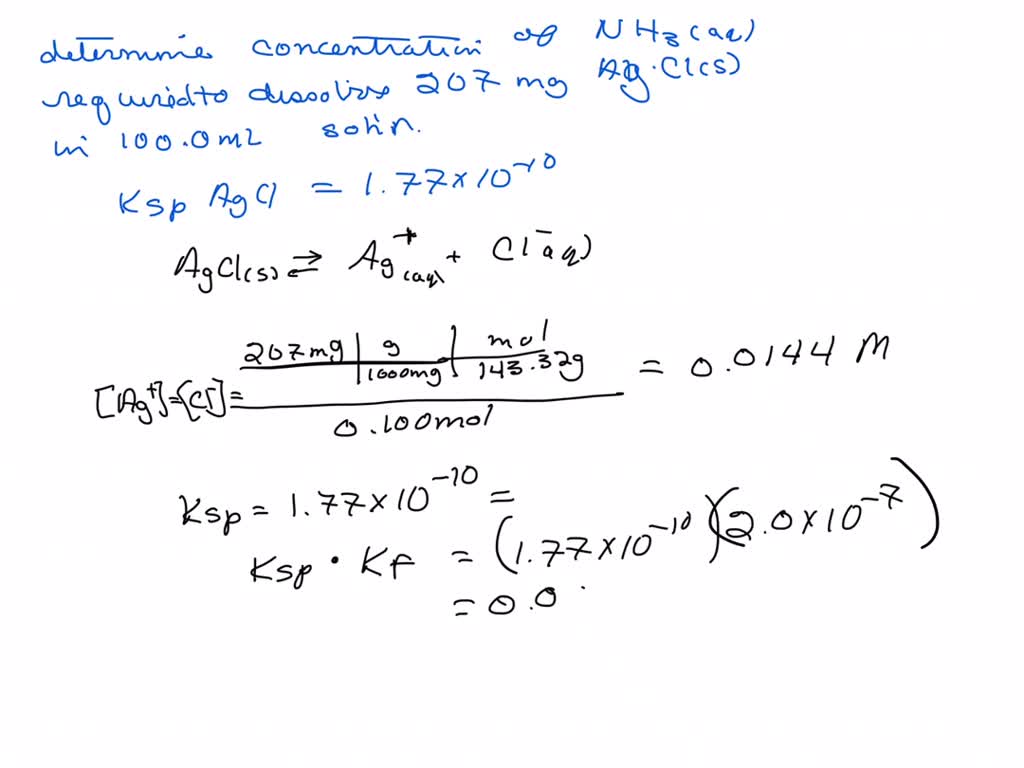 determine concentration of NH3(aq)
required to dissolve 207 mg Ag·Cl(s)
in 100.0 mL sol'n.
Ksp AgCl = 1.77×10⁻¹⁰
AgCl(s) ⇌ Ag⁺(aq) + Cl⁻(aq)
207mg | g | mol
1000mg | 143.32g
[Ag⁺]=[Cl⁻]= = 0.0144 M
0.100mol
Ksp = 1.77×10⁻¹⁰ =
Ksp · Kf = (1.77×10⁻¹⁰)(2.0×10⁻⁷)
= 0.0